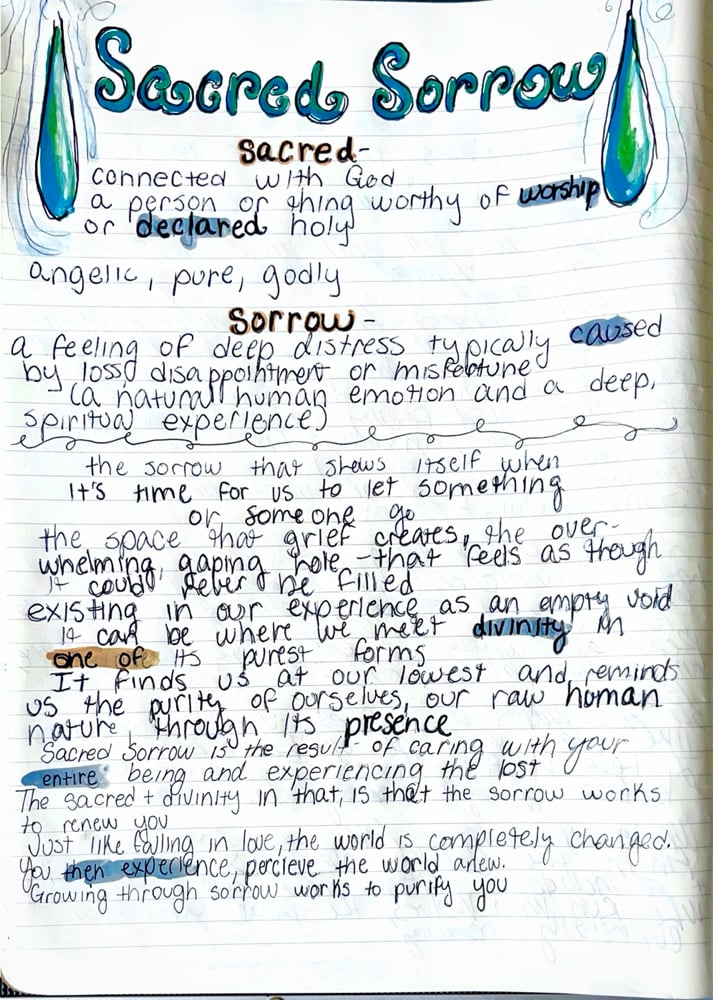 Sacred Sorrow
sacred-
connected with God
a person or thing worthy of worship
or declared holy
angelic, pure, godly
sorrow-
a feeling of deep distress typically caused
by loss, disappointment or misfortune
(a natural human emotion and a deep,
spiritual experience)
the sorrow that shows itself when
It's time for us to let something
or someone go
the space that grief creates, the over-
whelming, gaping hole -that feels as though
it could never be filled
existing in our experience as an empty void
it can be where we meet divinity in
one of its purest forms
It finds us at our lowest and reminds
us the purity of ourselves, our raw human
nature, through its presence
Sacred Sorrow is the result of caring with your
entire being and experiencing the lost
The sacred + divinity in that, is that the sorrow works
to renew you
Just like falling in love, the world is completely changed.
You then experience, percieve the world anew.
Growing through sorrow works to purify you